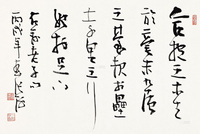 合抱之木生
於毫末九層
之臺起於壘
土千里之行
始於足下
老子句
丙戌年